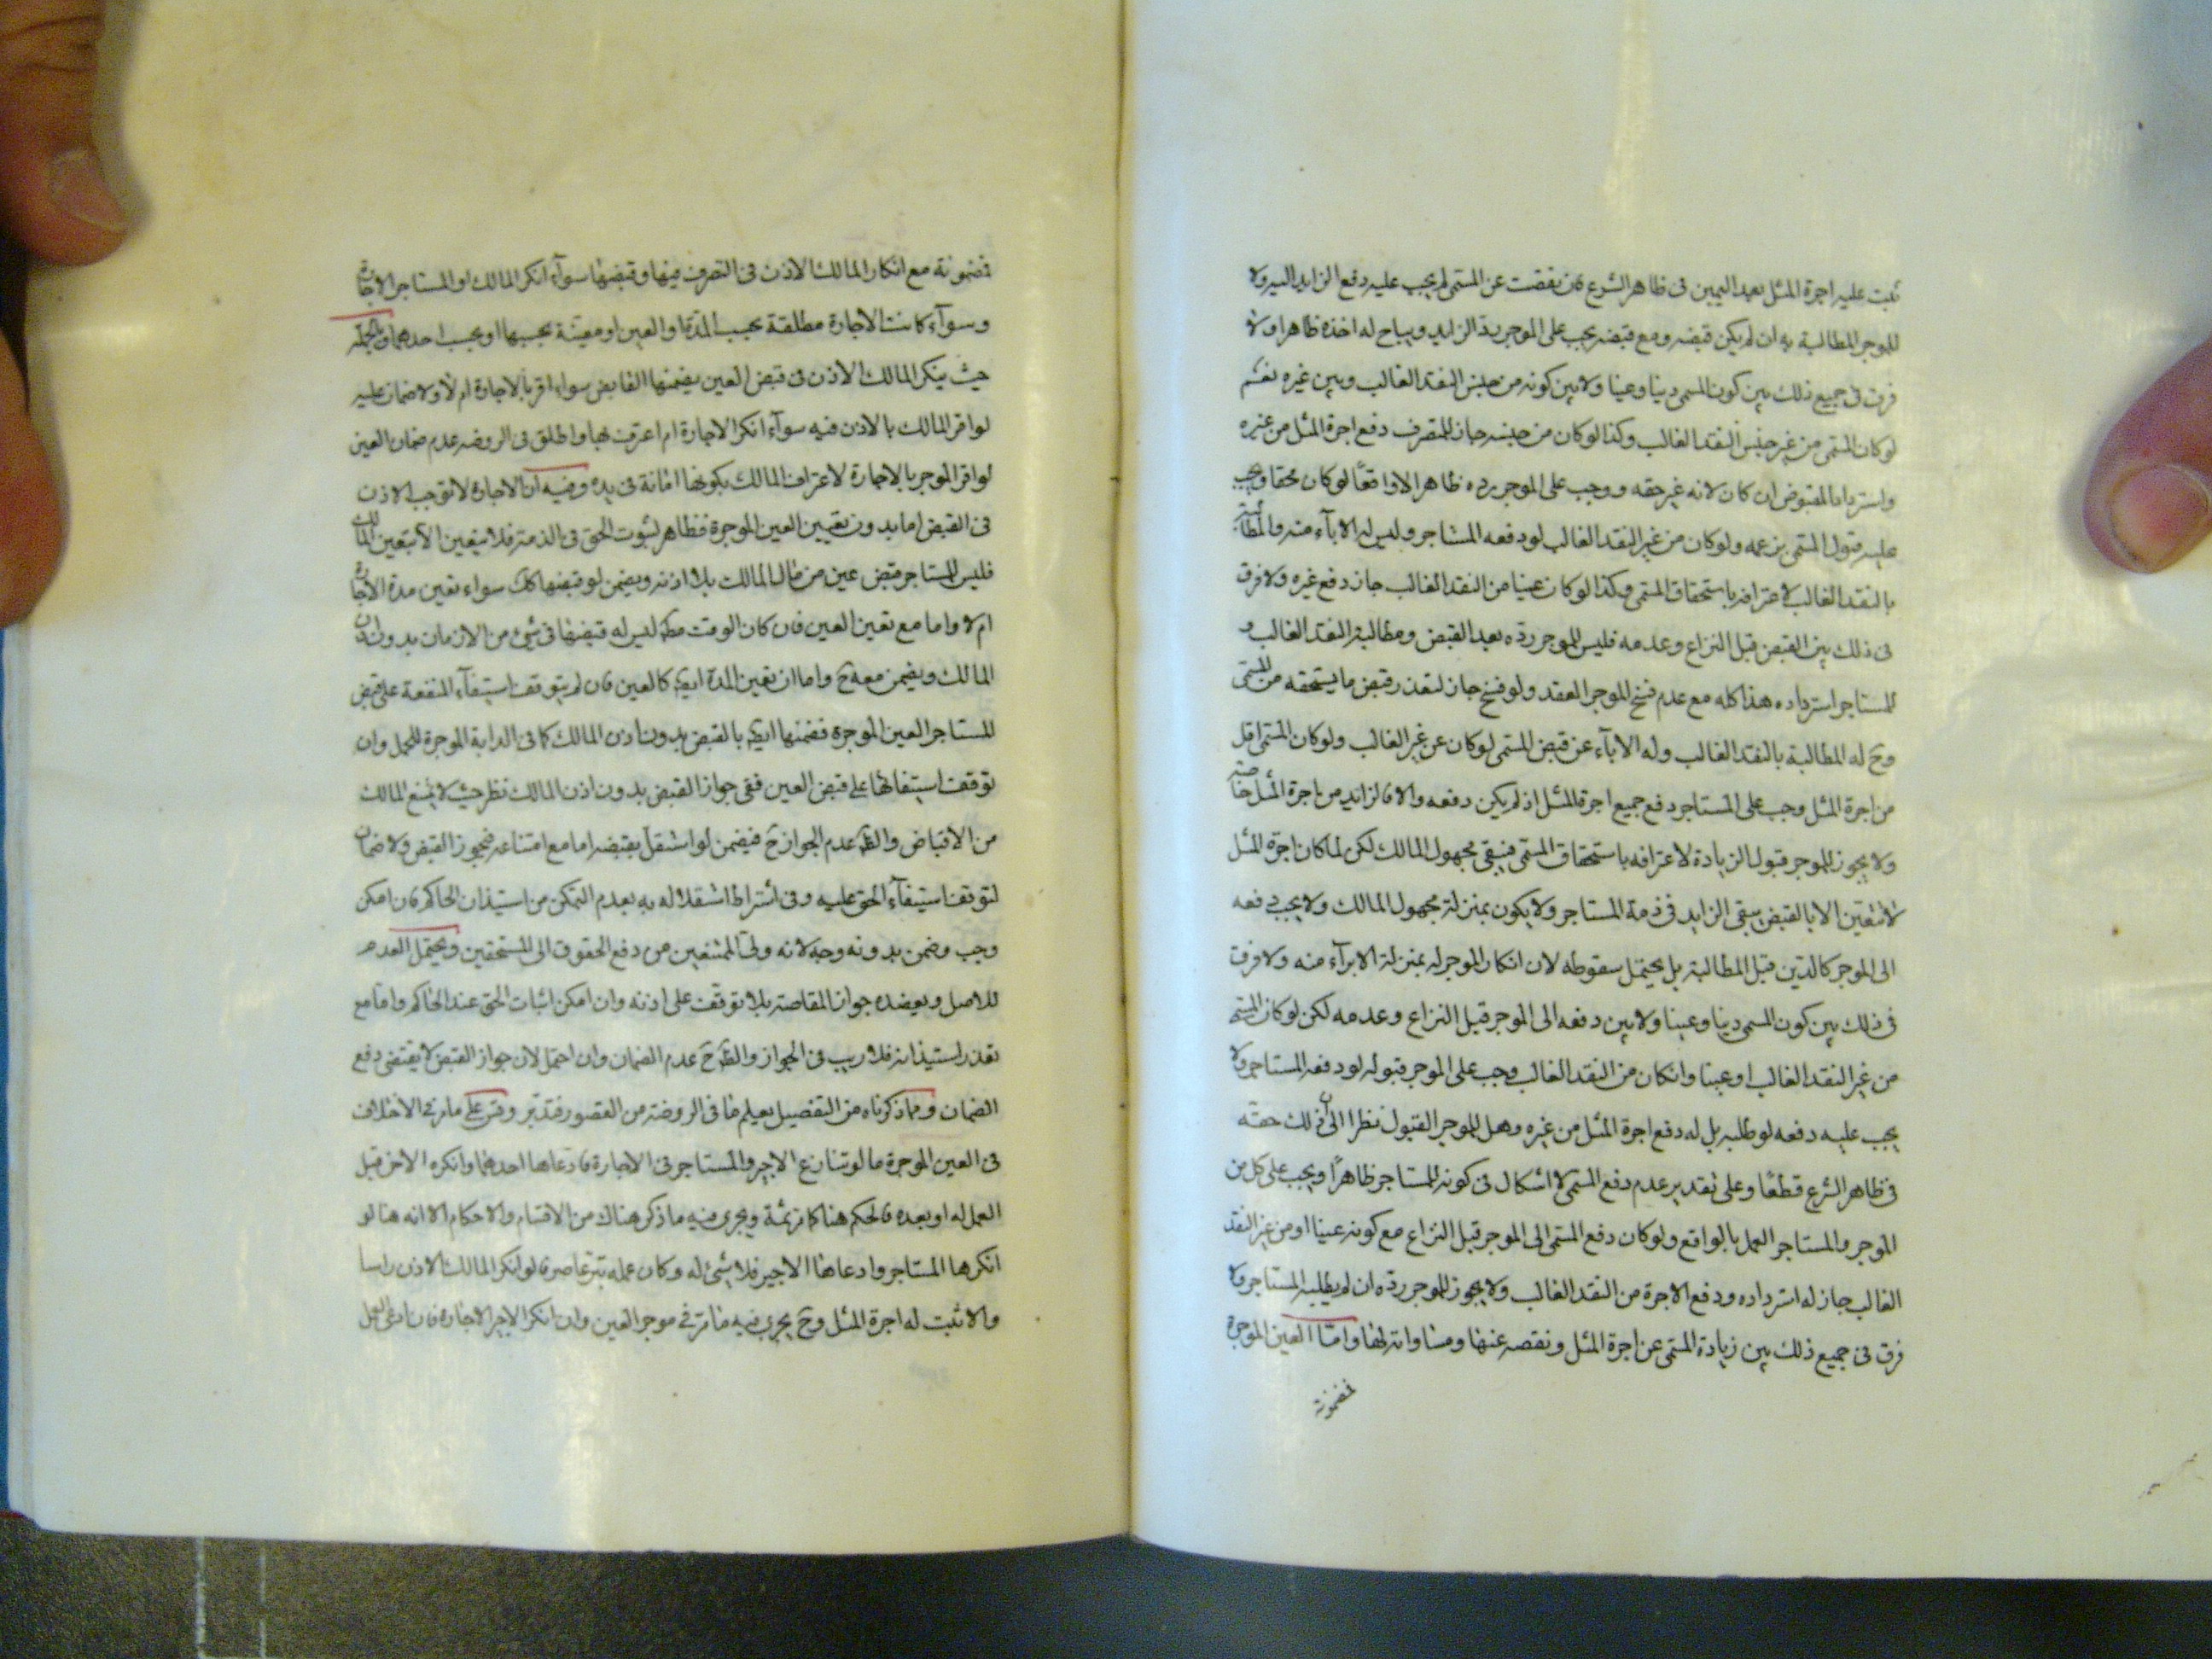 ثبت عليه اجرة المثل بعد اليمين فى ظاهر الشرع فان نقصت عن المسمى لم يجب عليه دفع الزايد اليه ولا
للموجر المطالبة به ان لم يكن قبضه ومع قبضه يجب على الموجر رد الزايد ويباح له اخذه ظاهرا ولا
فرق فى جميع ذلك بين كون المسمى دينا وعينا ولا بين كونه من جنس النقد الغالب وبين غيره نعم
لو كان المسمى من غير جنس النقد الغالب وكذا لو كان من جنسه جاز للمتصرف دفع اجرة المثل من غيره
واسترداد المقبوض ان كان لانه غير حقه ووجب على الموجر رده ظاهرا لا واقعا لو كان محقا ويجب
عليه قبول المسمى بزعمه ولو كان من غير النقد الغالب لو دفعه المستاجر وليس له الاباء منه والمطالبة
بالنقد الغالب لاعترافه باستحقاق المسمى وكذا لو كان عينا من النقد الغالب جاز دفع غيره ولا فرق
فى ذلك بين القبض قبل النزاع وعدمه فليس للموجر رده بعد القبض ومطالبة النقد الغالب و
للمستاجر استرداده هذا كله مع عدم فسخ الموجر العقد ولو فسخ جاز لتعذر قبض ما يستحقه من المسمى
وح له المطالبة بالنقد الغالب وله الاباء عن قبض المسمى لو كان عن غير الغالب ولو كان المسمى اقل
من اجرة المثل وجب على المستاجر دفع جميع اجرة المثل اذ لم يكن دفعه والا فالزايد من اجرة المثل خاصة
ولا يجوز للموجر قبول الزيادة لاعترافه باستحقاق المسمى فيبقى مجهول المالك لكن لما كان اجرة المثل
لا تتعين الا بالقبض يبقى الزايد فى ذمة المستاجر ولا يكون بمنزلة مجهول المالك ولا يجب دفعه
الى الموجر كالدين قبل المطالبة بل يحتمل سقوطه لان انكار الموجر له بمنزلة الابراء منه ولا فرق
فى ذلك بين كون المسمى دينا وعينا ولا بين دفعه الى الموجر قبل النزاع وعدمه لكن لو كان المسمى
من غير النقد الغالب او عينا وان كان من النقد الغالب وجب على الموجر قبوله لو دفعه المستاجر ولا
يجب عليه دفعه لو طلبه بل له دفع اجرة المثل من غيره وهل للموجر القبول نظرا الى ان ذلك حقه
فى ظاهر الشرع قطعا وعلى تقدير عدم دفع المسمى لا اشكال فى كونه للمستاجر ظاهرًا ويجب على كل من
الموجر والمستاجر العمل بالواقع ولو كان دفع المسمى الى الموجر قبل النزاع مع كونه عينا او من غير النقد
الغالب جاز له استرداده ودفع الاجرة من النقد الغالب ولا يجوز للموجر رده ان لم يطلبه المستاجر ولا
فرق فى جميع ذلك بين زيادة المسمى عن اجرة المثل ونقصه عنها ومساواته لها واما العين الموجرة
فمضمونة
فمضمونة مع انكار المالك الاذن فى التصرف فيها وقبضها سواء انكر المالك او المستاجر الاجارة
وسواء كانت الاجارة مطلقة بحسب المدة والعين او معينة بحسبهما او بحسب احدهما وبالجملة
حيث ينكر المالك الاذن فى قبض العين يضمنها القابض سواء اقر بالاجارة ام لا ولا ضمان عليه
لو اقر المالك بالاذن فيه سواء انكر الاجارة ام اعترف بها واطلق فى الروضه عدم ضمان العين
لو اقر الموجر بالاجارة لاعتراف المالك بكونها امانة فى يده وفيه ان الاجارة لا توجب الاذن
فى القبض اما بدون تعيين العين الموجرة فظاهر لثبوت الحق فى الذمة فلا يتعين الا بتعين المالك
فليس للمستاجر قبض عين من مال المالك بلا اذنه ويضمن لو قبضها كك سواء تعين مدة الاجارة
ام لا واما مع تعين العين فان كان الوقت مط ليس له قبضها فى شىء من الازمان بدون اذن
المالك ويضمن معه ح واما ان تعين المدة ايض كالعين فان لم يتوقف استيفاء المنفعة على قبض
المستاجر العين الموجرة فضمنها ايض بالقبض بدون اذن المالك كما فى الدابة الموجرة للحمل وان
توقف استيفائها على قبض العين ففى جواز القبض بدون اذن المالك نظر حيث لا يمنع المالك
من الاقباض والظ عدم الجواز ح فيضمن لو استقل بقبضه اما مع امتناعه فيجوز القبض ولا ضمان
لتوقف استيفاء الحق عليه وفى اشتراط استقلاله به بعدم التمكن من استيذان الحاكم فان امكن
وجب وضمن بدونه وجه لانه ولى الممتنعين من دفع الحقوق الى المستحقين ويحتمل العدم
للاصل ويعضده جواز المقاصة بلا توقف على اذنه وان امكن اثبات الحق عند الحاكم واما مع
تعذر استيذانه فلا ريب فى الجواز والظ ح عدم الضمان وان احتمل لان جواز القبض لا يقتضى دفع
الضمان ومما ذكرناه من التفصيل يعلم ما فى الروضة من القصور فتدبر وقس على ما مر فى الاختلاف
فى العين الموجرة ما لو تنازع الاجير والمستاجر فى الاجارة فادعاها احدهما وانكره الاخر قبل
العمل له او بعده فالحكم هنا كما ثمة ويجرى فيه ما ذكر هناك من الاقسام والاحكام الا انه هنا لو
انكرها المستاجر وادعاها الاجير فلا شىء له وكان عمله تبرعا صرفا لو انكر المالك الاذن راسا
والا ثبت له اجرة المثل وح يجرى فيه ما مر فى موجر العين وان انكر الاجير الاجارة فان ادعى العمل